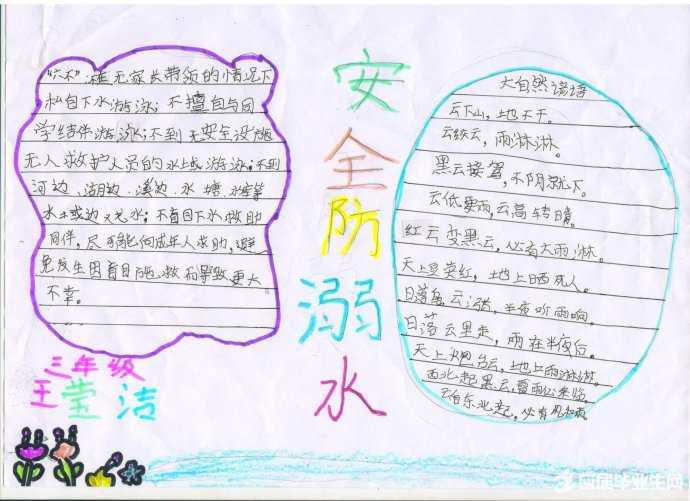 "六不":在无家长带领的情况下
私自下水游泳;不擅自与同
学结伴游泳;不到无安全设施
无人救护人员的水域游泳;不到
河边、湖边、溪边、水塘、水库等
水域边玩水;不盲目下水救助
同伴,尽可能向成年人求助,避
免发生因盲目施救而导致更大
不幸。
三年级
王莹洁
安
全
防
溺
水
大自然谚语
云下山,地不干。
云绞云,雨淋淋。
黑云接驾,不阴就下。
云低要雨,云高转晴。
红云变黑云,必有大雨淋。
天上豆荚红,地上晒死人。
日落乌云涨,半夜听雨响。
日落云里走,雨在半夜后。
天上云,地上雨淋
西北起黑云,雷雨必来临。
云自东北起,必有风和雨。
应届毕业生网